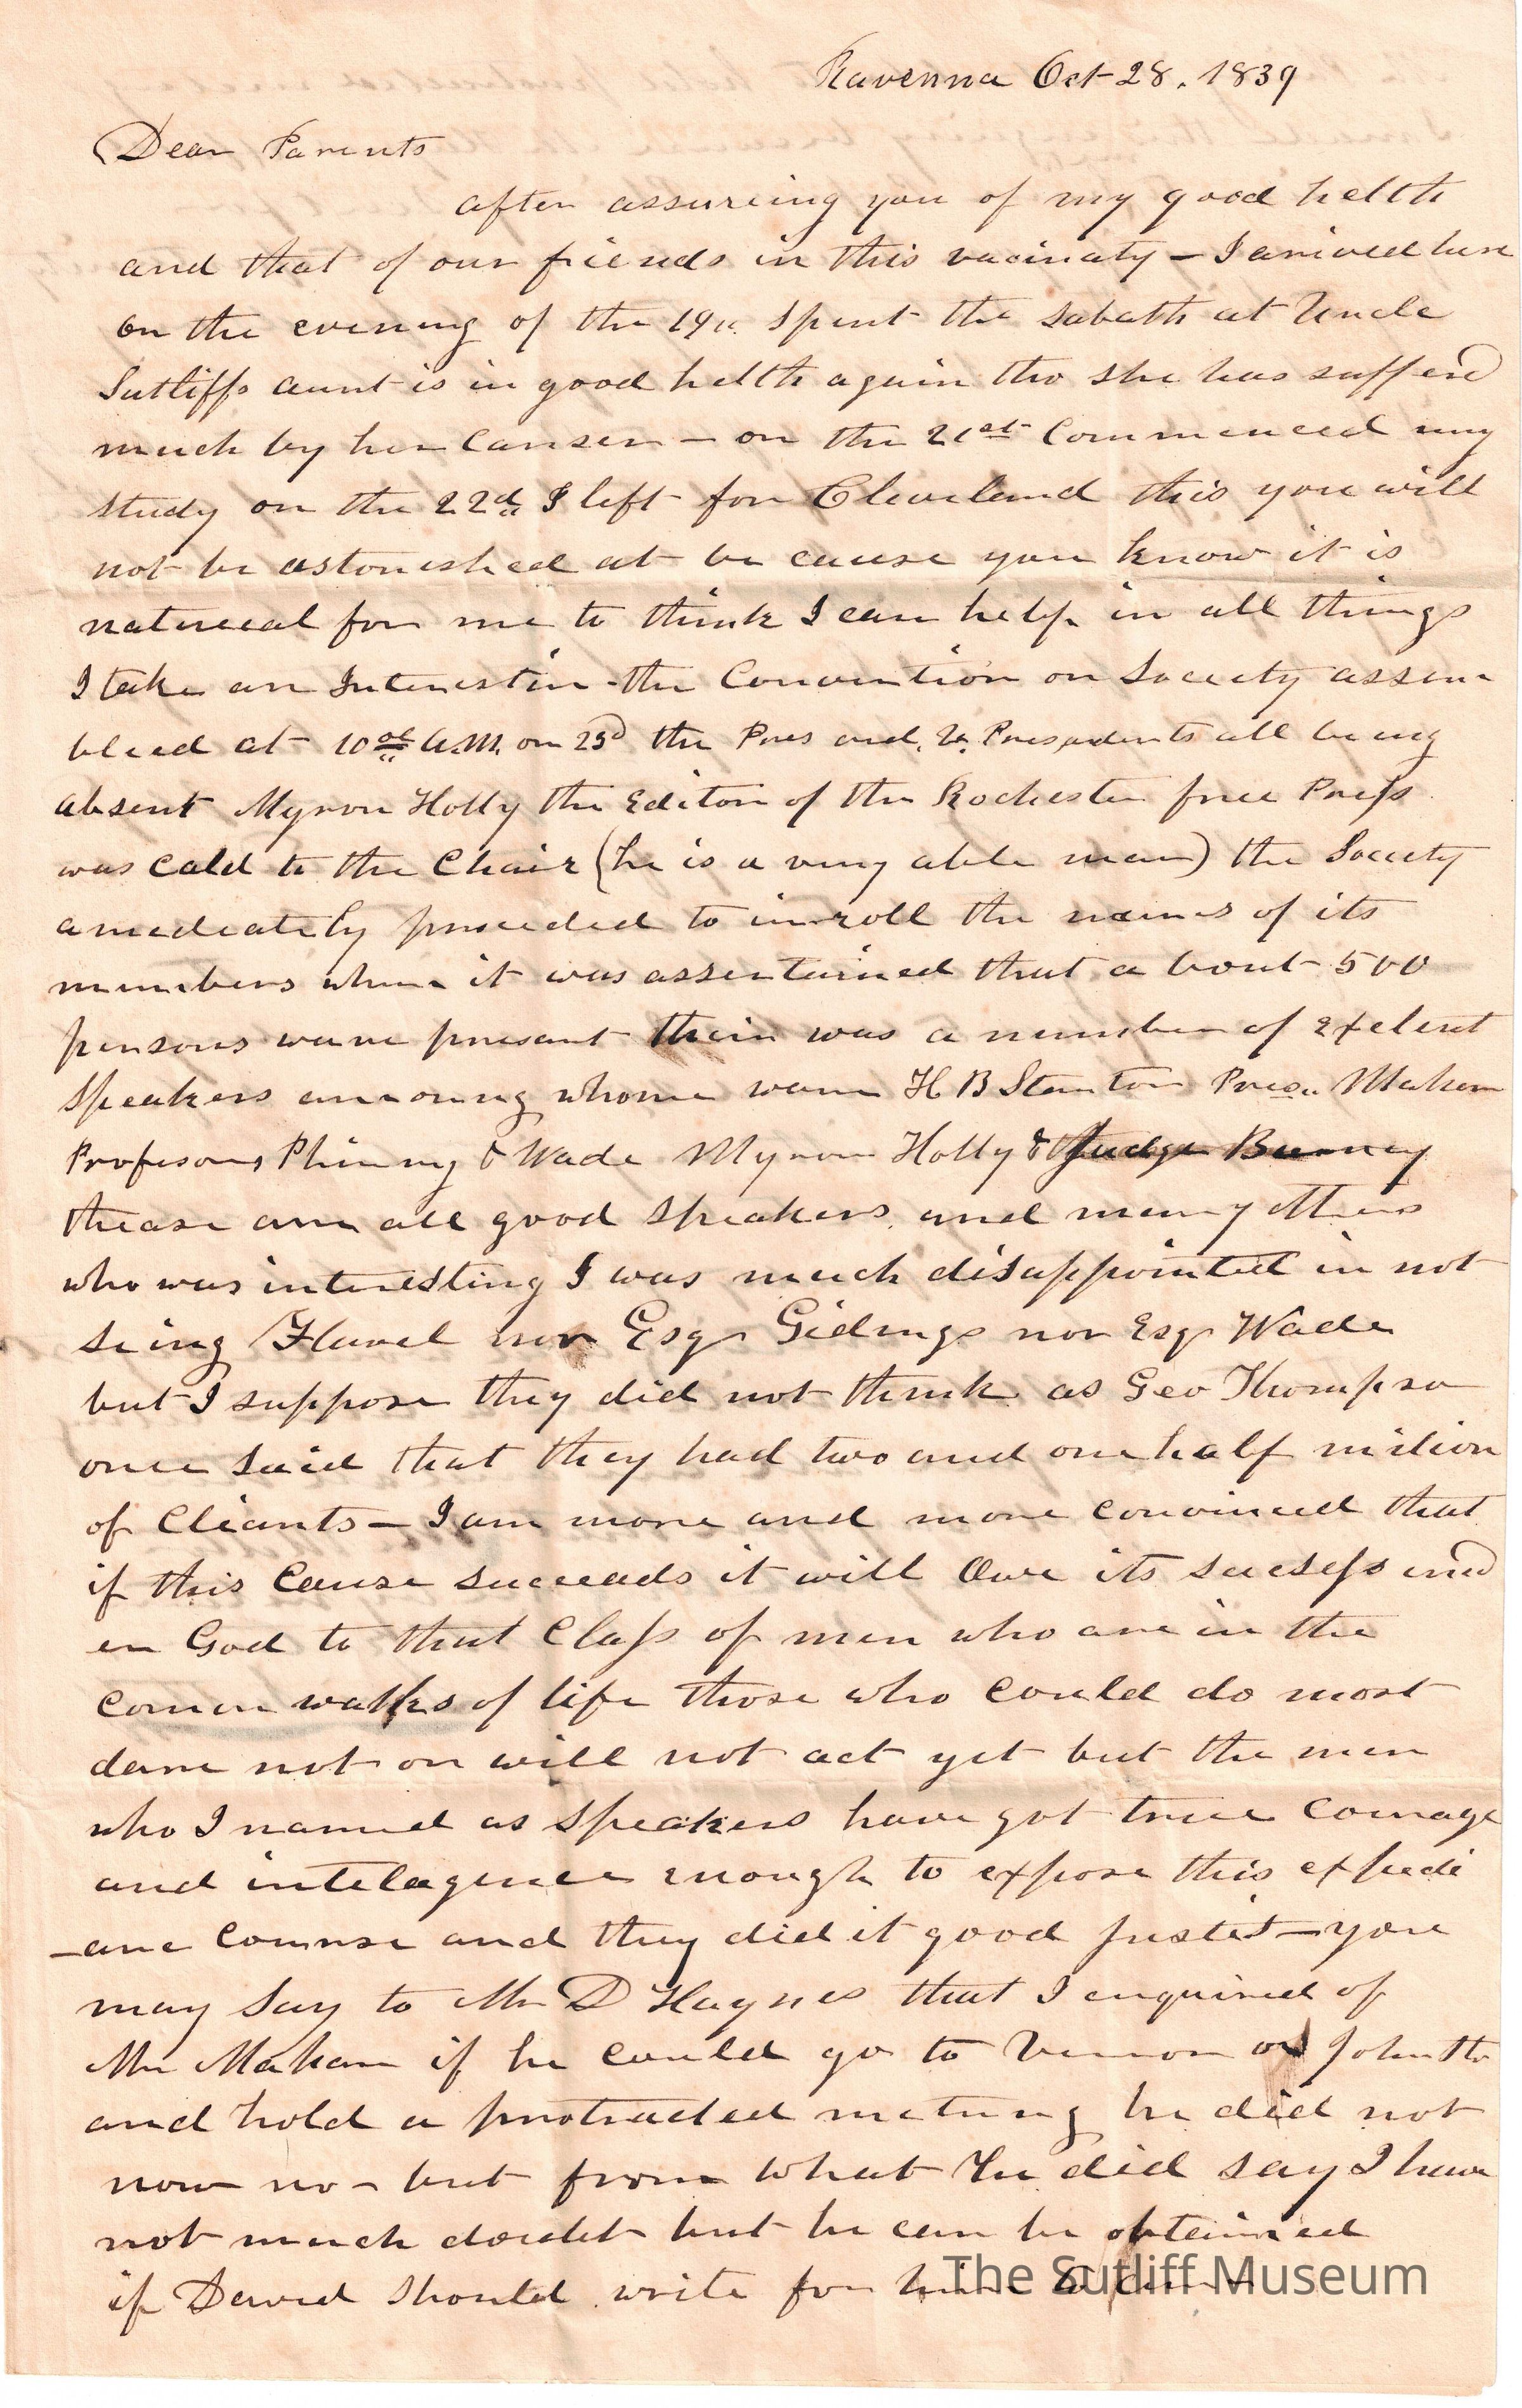 Ravenna Oct 28. 1839
Dear Parents
after assureing you of my good helth
and that of our friends in this vacinaty – I arived here
on the evening of the 19th spent the sabath at Uncle
Sutliffs aunt is in good helth again tho she has sufferd
much by her Canser – on the 21st Commenced my
study on the 22d I left for Cleveland this you will
not be astonished at be cause you know it is
natureal for me to think I can help in all things
I take an Interest in – the Convention or Society assem
bled at 10 A.M. on 23d the Pres and V. Presadents all being
absent Myron Holly the Editor of the Rochester free Press
was cald to the Chair (he is a very able man) the Society
amediately proceeded to inroll the names of its
members when it was assertained that a bout 500
persons ware presant their was a number of exelent
speakers amoung whome ware H B Stanton Pres. Mahan
Profesors Phinny & Wade Myron Holly & Judge Burney
thease are all good speakers and many others
who was interesting I was much disappointed in not
seing Flavel nor Esqr Gidings nor Esqr Wade
but I suppose they did not think as Geo Thompson
once said that they had two and one half milion
of Cliants – I am more and more convinced that
if this Cause succeads it will Owe its sucsess und
er God to that Class of men who are in the
comon walks of life those who could do most
dare not or will not act yet but the men
who I named as speakers have got true courage
and intelagence enough to expose this expedi
–anc course and they did it good justis – you
may say to Mr D Haynes that I enquired of
Mr Mahan if he could go to Vernon or Johnston
and hold a protracted meeting he did not
now no – but from what he did say I have
not much doubt but he can be obtained
if David should write for him to
The Sutliff Museum